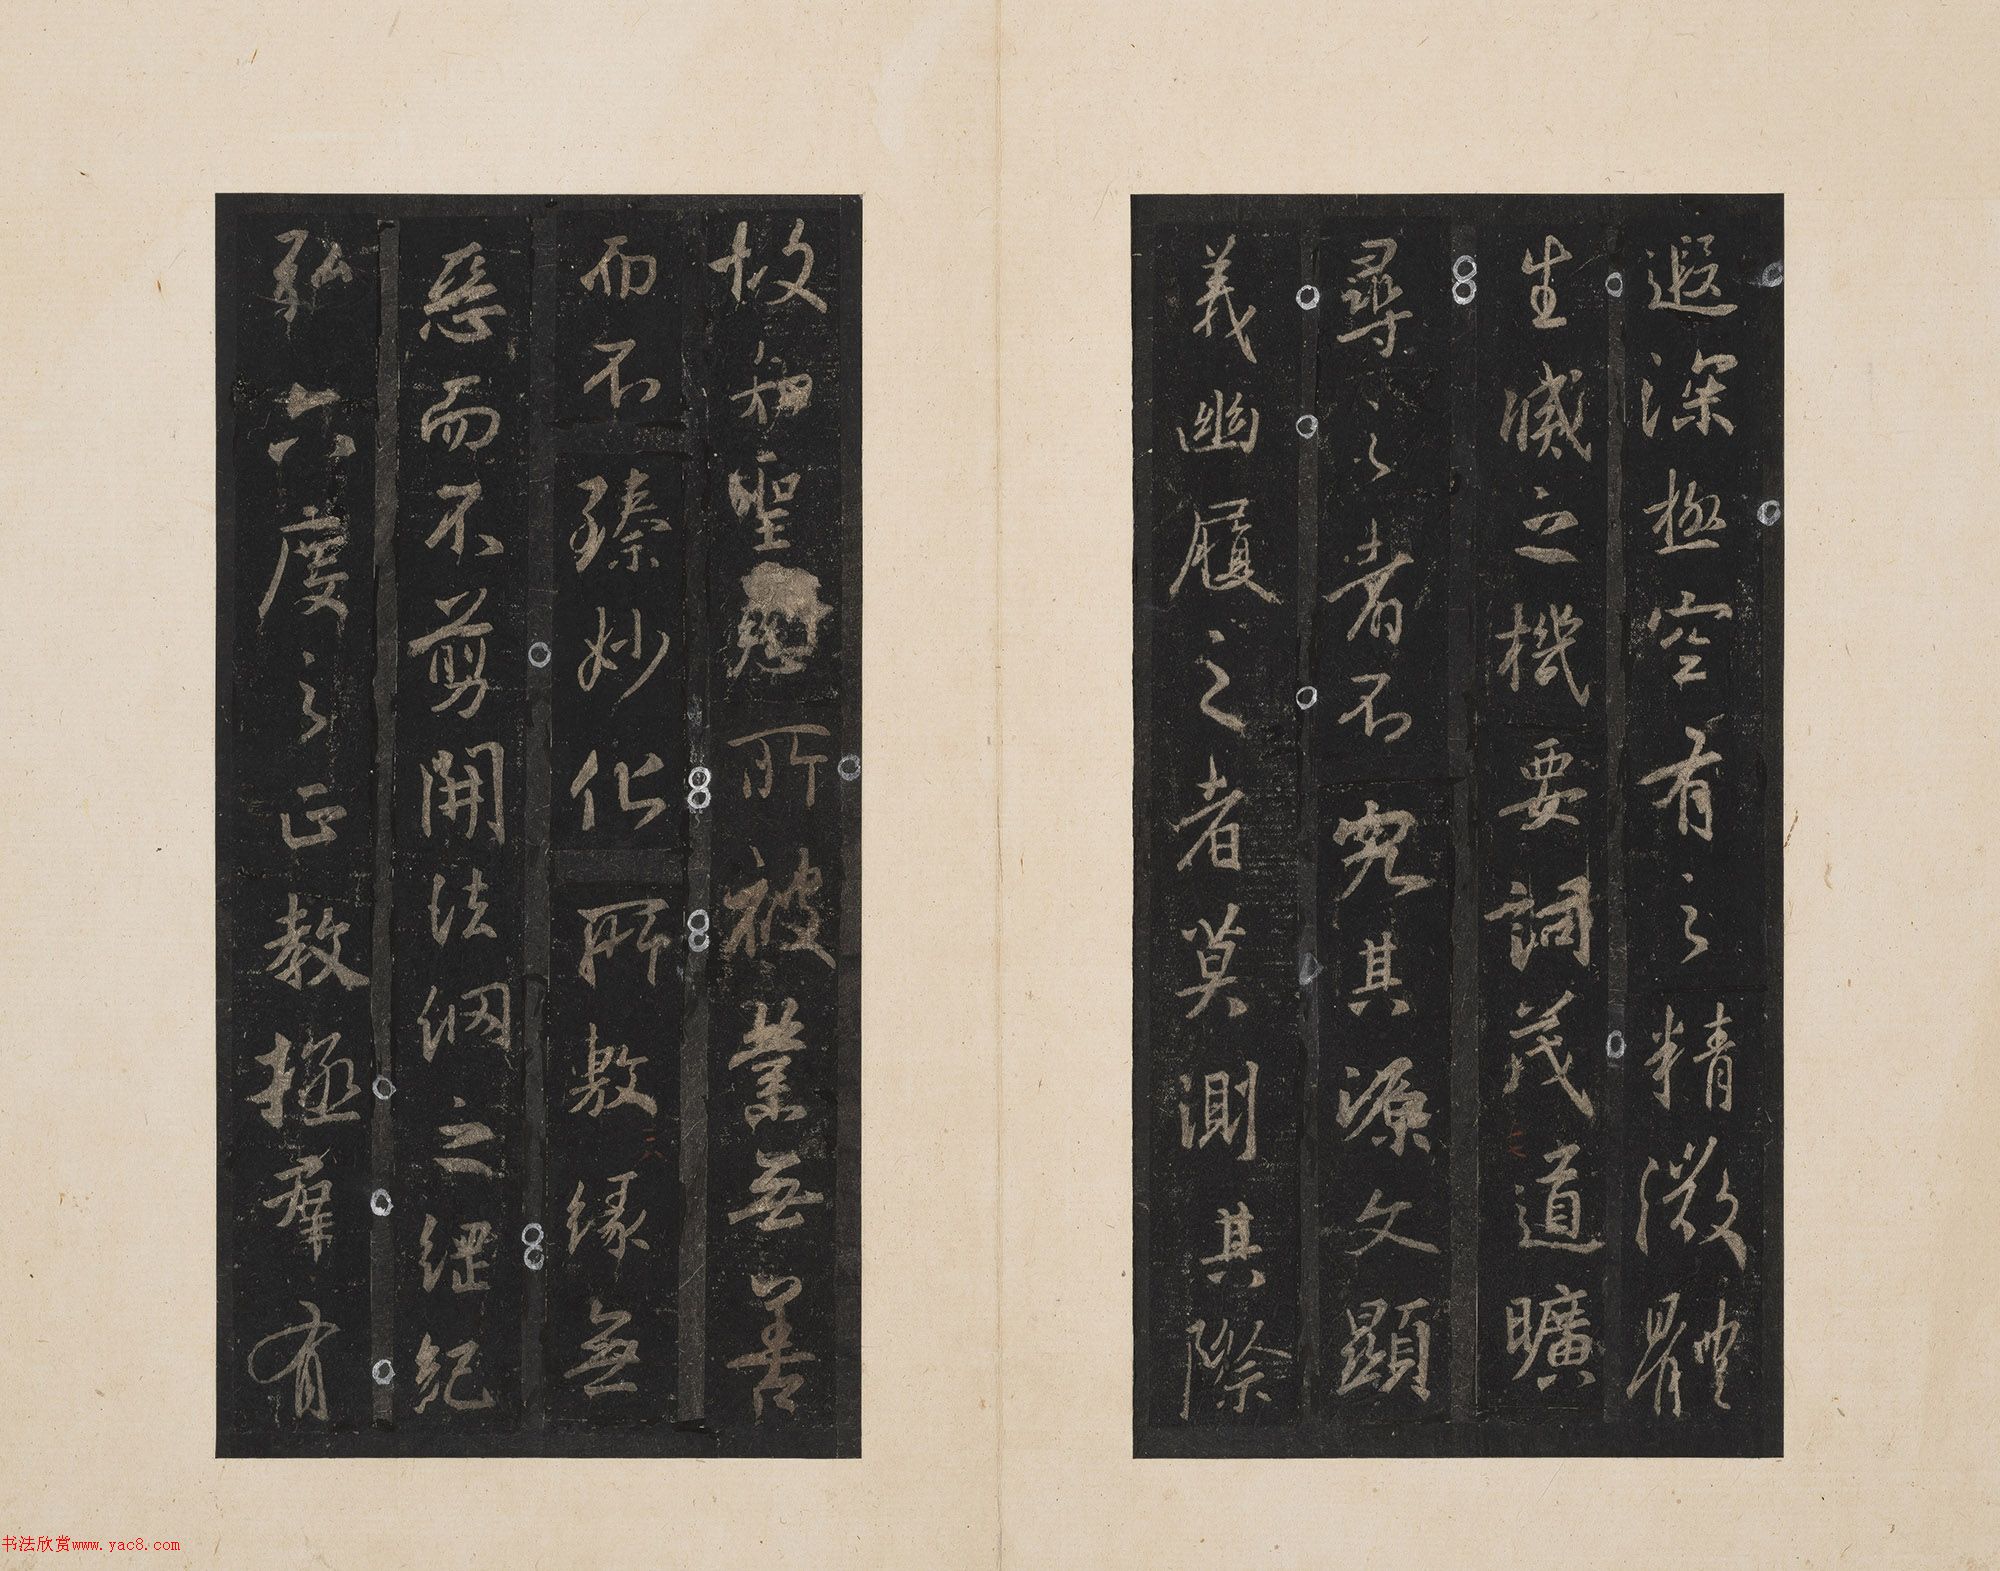 遐深極空有之精微體
生滅之機要詞茂道曠
尋之者不究其源文顯
義幽履之者莫測其際
故知聖慈所被業無善
而不臻妙化所敷緣無
惡而不剪開法網之綱紀
弘六度之正教拯群有
三
六
书法欣赏www.yac8.com